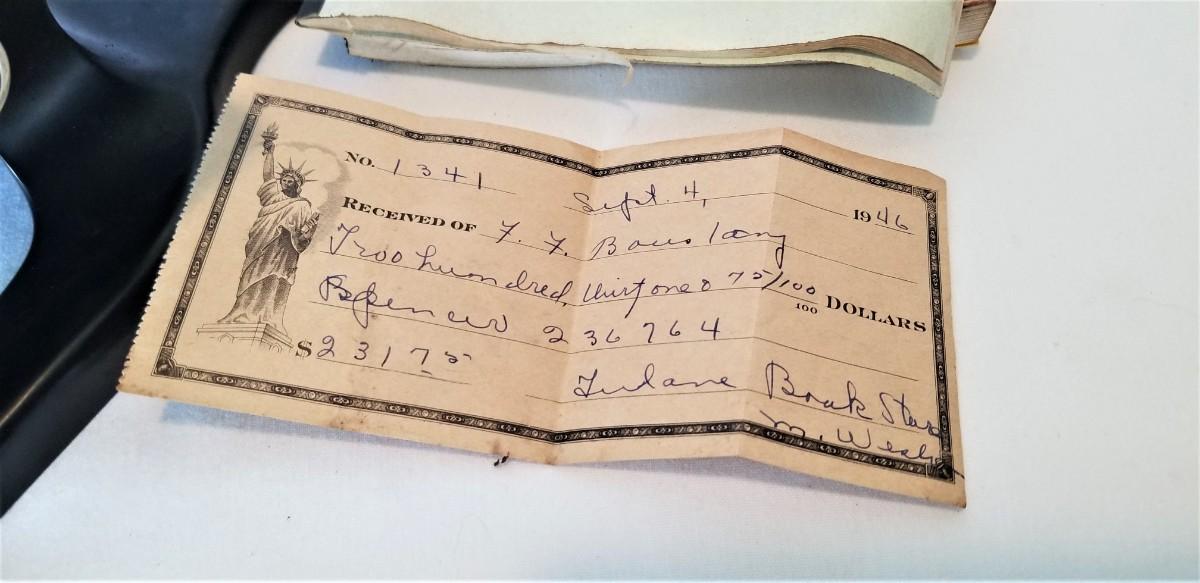 No. 1341
Sept. 4, 1946
RECEIVED OF F. F.
Two hundred, thirtyone & 75/100 /100 DOLLARS
Spencer 236764
$ 231 75
Tulane Book Store
M.